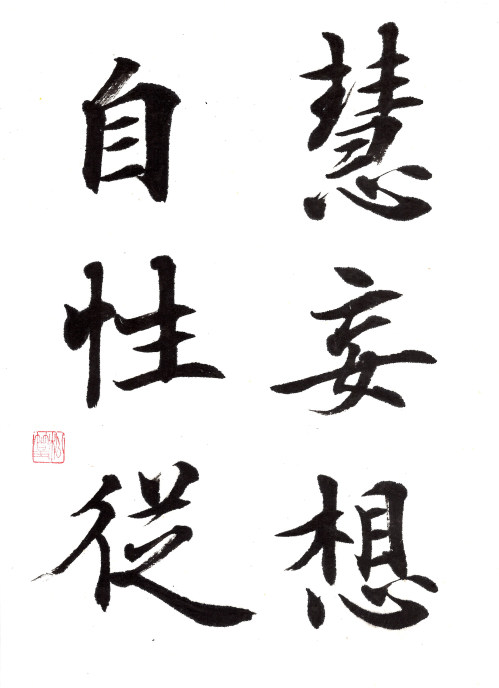 慧妄想
自性従